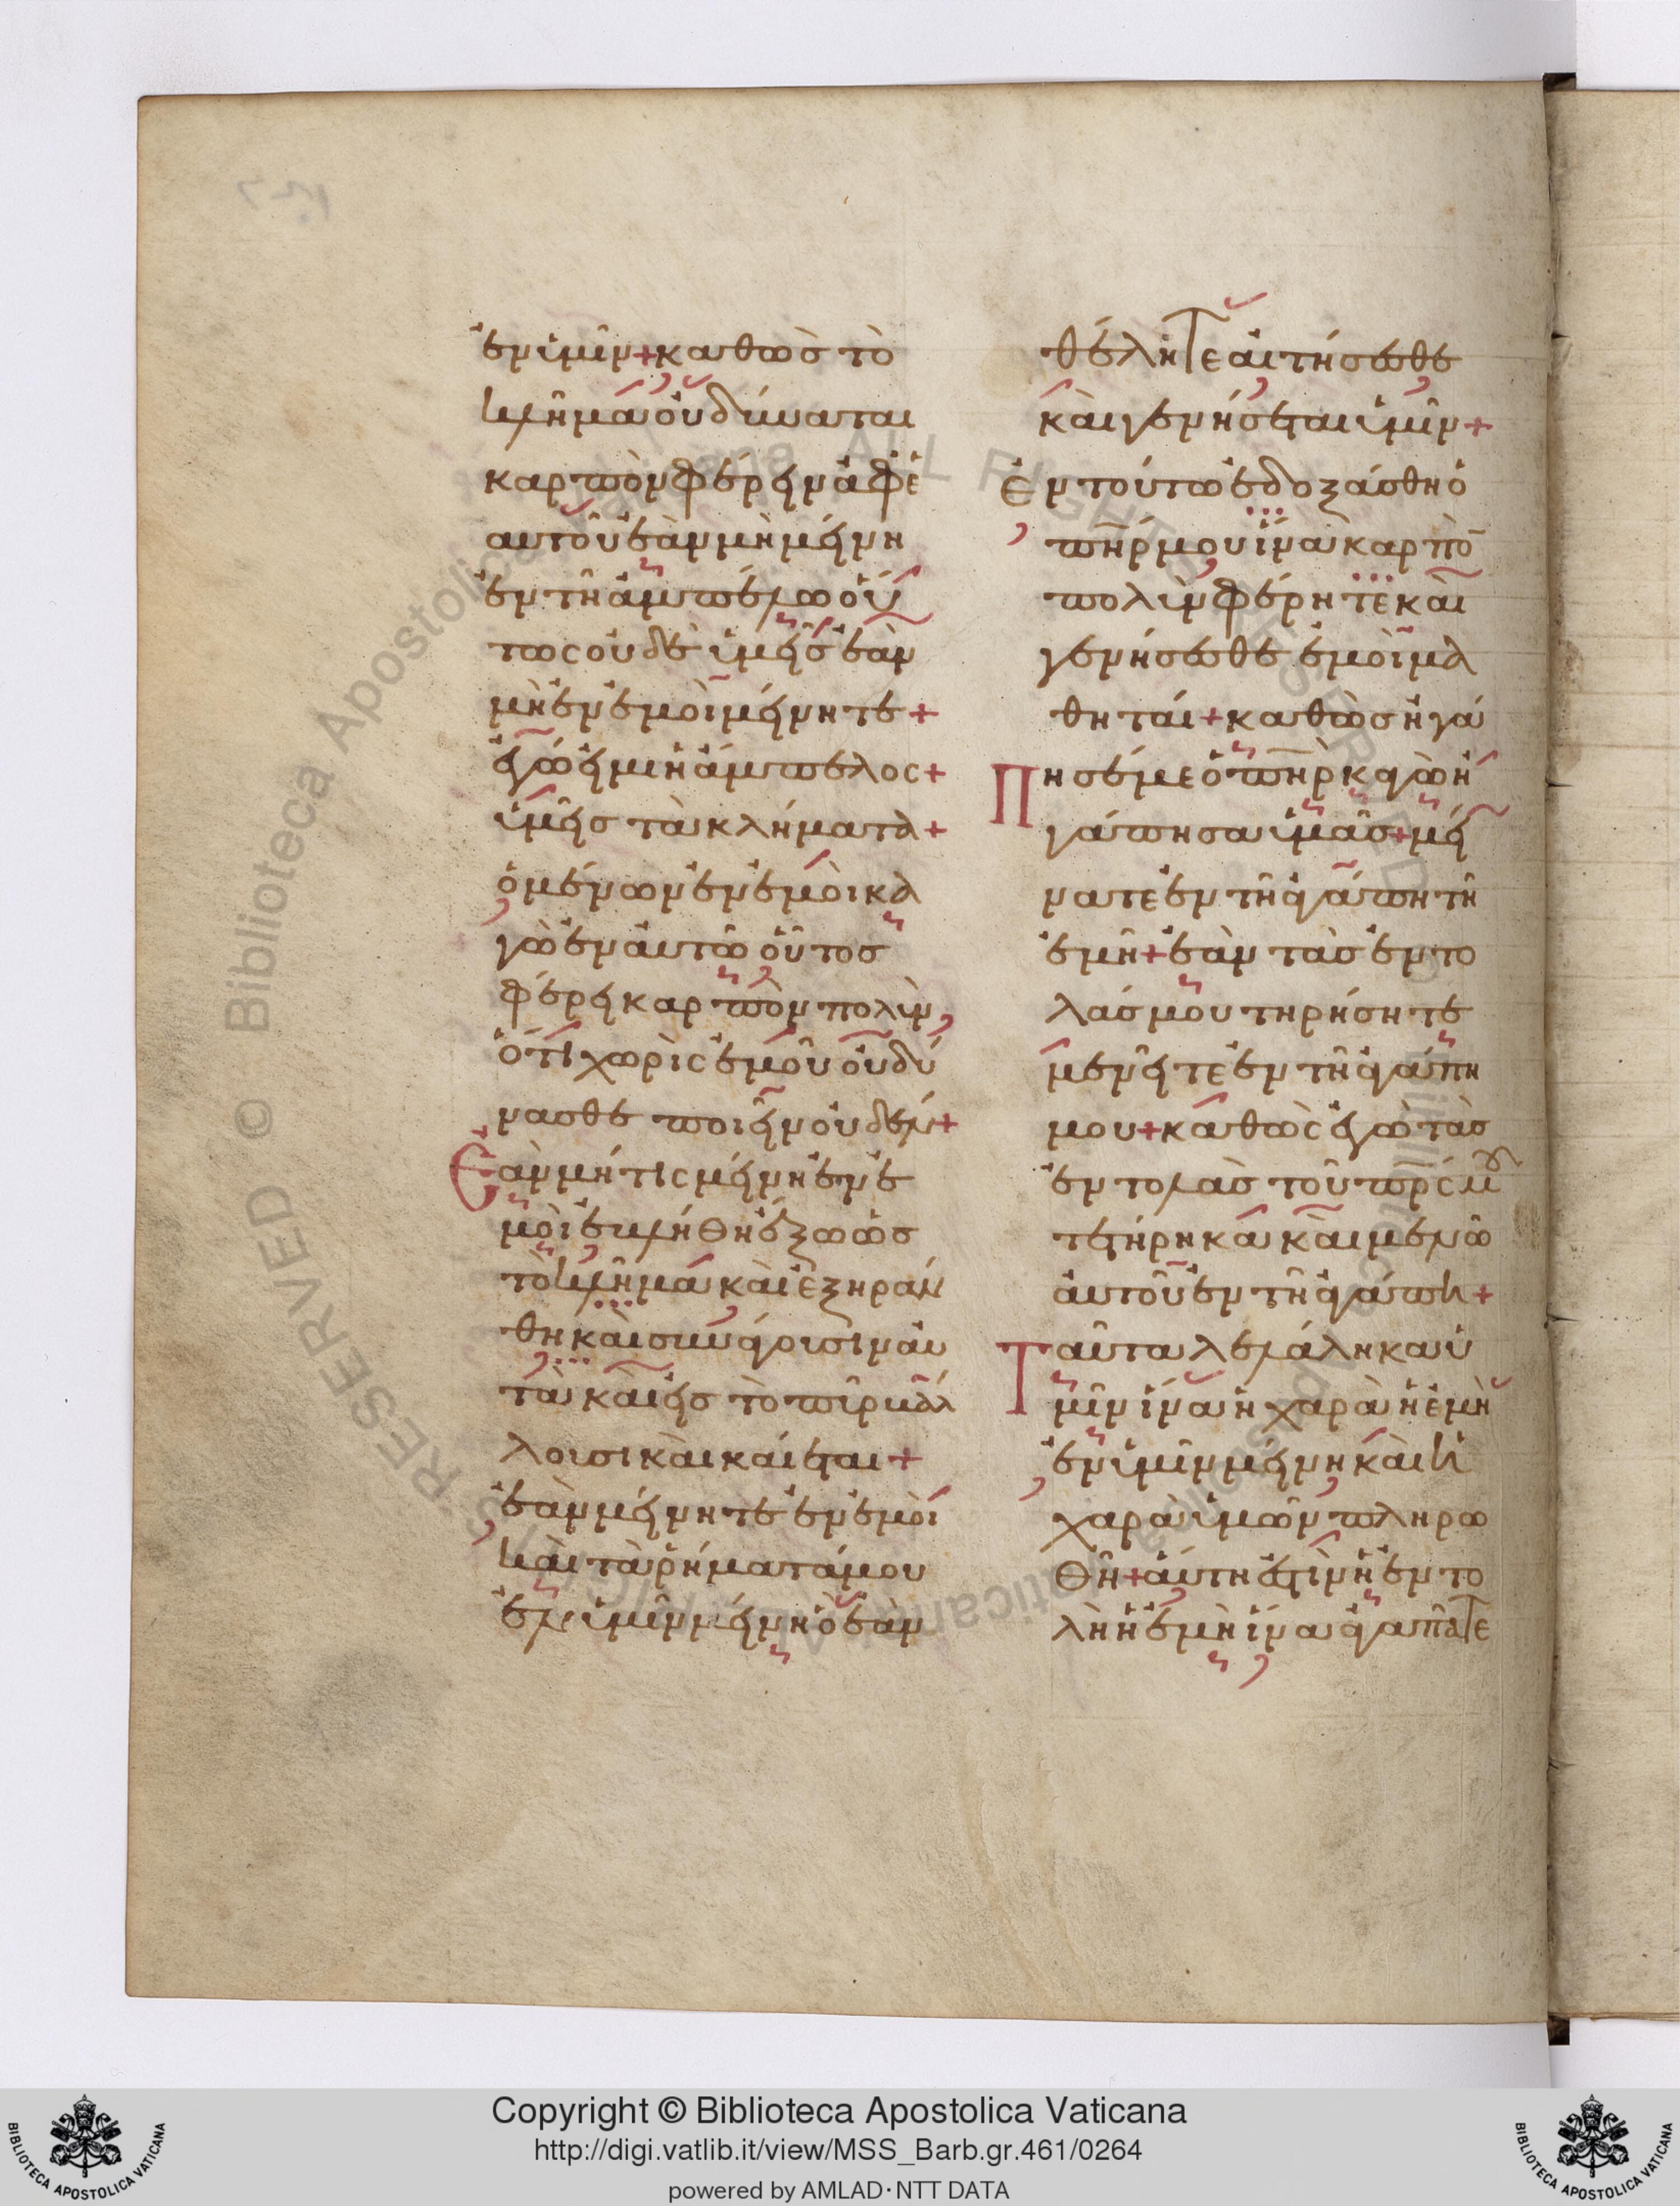 ἐν ὑμῖν + καθὼς τὸ
κλῆμα οὐ δύναται
καρπὸν φέρειν ἀφ' ἑ
αυτοῦ ἐὰν μὴ μείνη
ἐν τῆ ἀμπέλω οὕ
τως οὐδὲ ὑμεῖς ἐὰν
μὴ ἐν ἐμοὶ μείνητε +
ἐγώ εἰμι ἡ ἄμπελος +
ὑμεῖς τὰ κλήματα +
ὁ μένων ἐν ἐμοὶ κα
γὼ ἐν αυτῶ οὗτος
φέρει καρπὸν πολὺν
ὅτι χωρὶς ἐμοῦ οὐ δύ
νασθε ποιεῖν οὐδέν +
Ἐὰν μή τις μείνη ἐν ἐ
μοὶ ἐκλήθη ἔξω ὡς
τὸ κλῆμα καὶ ἐξηράν
θη καὶ συνάγουσιν αυ
τὰ καὶ εἰς τὸ πῦρ βάλ
λουσι καὶ καίεται +
ἐὰν μείνητε ἐν ἐμοὶ
καὶ τὰ ῥήματά μου
ἐν ὑμῖν μείνη ὃ ἐὰν
θέλητε αἰτήσεσθε
καὶ γενήσεται ὑμῖν +
Ἐν τούτω ἐδοξάσθη ὁ
πηρ μου ἵνα καρπὸ
πολὺν φέρητε καὶ
γενήσεσθε ἐμοὶ μα
θηταί + καθὼς ἠγά
Πησέ με ὁ πηρ καγὼ ἠ
γάπησα ὑμᾶς + μεί
νατε ἐν τῆ ἀγάπη τῆ
ἐμῆ + ἐὰν τὰς ἐντο
λάς μου τηρήσητε
μενεῖτε ἐν τῆ ἀγάπη
μου + καθὼς ἐγὼ τὰς
ἐντολὰς τοῦ πρς μου
τετήρηκα καὶ μένω
αὐτοῦ ἐν τῆ ἀγάπη +
Ταῦτα λελάληκα ὑ
μῖν ἵνα ἡ χαρὰ ἡ ἐμὴ
ἐν ὑμῖν μείνη καὶ ἡ
χαρὰ ὑμῶν πληρω
θῆ + αὕτη ἐστὶν ἡ ἐντο
λὴ ἡ ἐμὴ ἵνα ἀγαπᾶτε
Copyright © Biblioteca Apostolica Vaticana
http://digi.vatlib.it/view/MSS_Barb.gr.461/0264
powered by AMLAD·NTT DATA